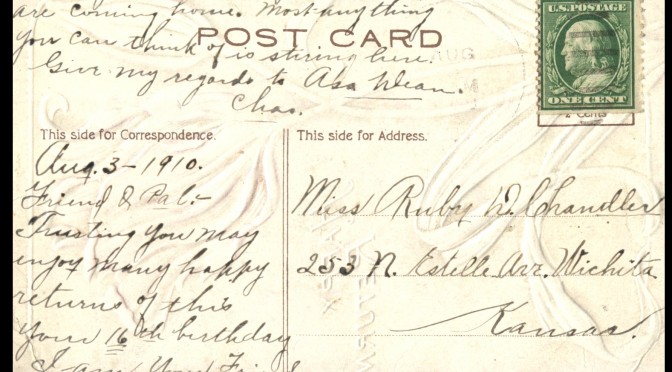 are coming home. Most anything
you can think of is stiring here.
Give my regards to Asa Dean.
Chas.
POST CARD
AUG
U.S. POSTAGE
ONE CENT
2 Cents
This side for Correspondence.
Aug. 3-1910.
Friend & Pal:-
Trusting you may
enjoy many happy
returns of this
your 16th birthday
I am Your
This side for Address.
Miss Ruby D. Chandler
253 N. Estelle Ave. Wichita
Kansas.